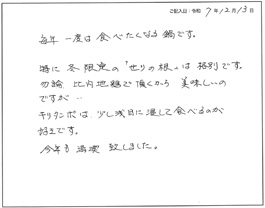 ご記入日:令和 7年12月13日
毎年一度は食べたくなる鍋です。
特に冬限定の「せりの根」は格別です。
勿論、比内地鶏で頂くから美味しいの
ですが…
キリタンポは、少し浅目に浸して食べるのが
好きです。
今年も満喫致しました。